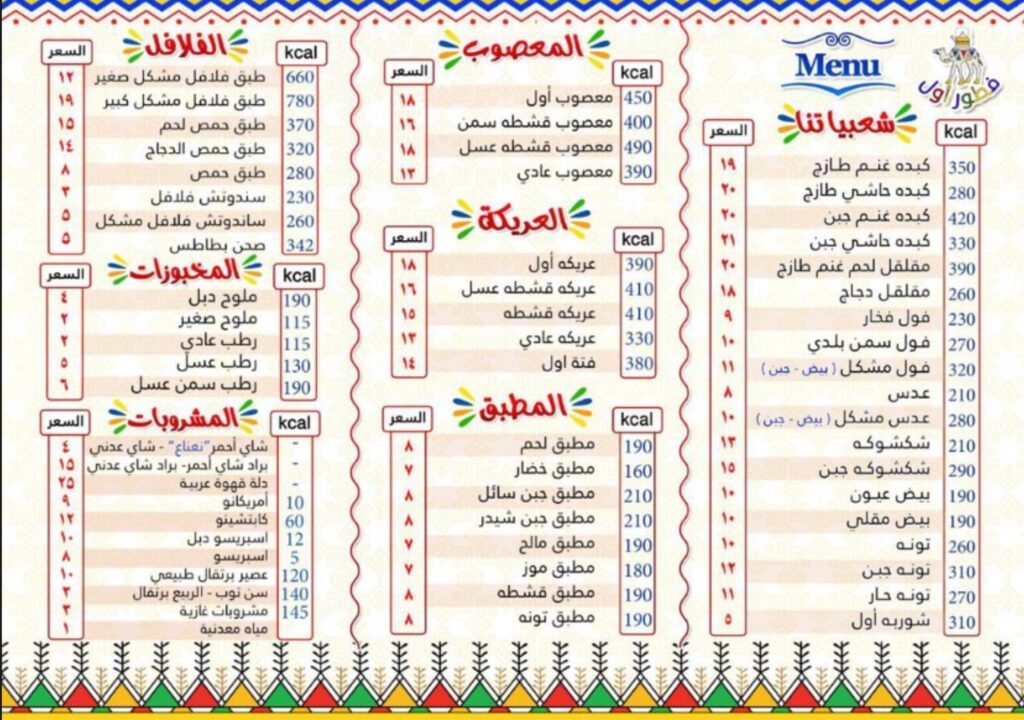 Menu
فطور أول
شعبياتنا
kcal السعر
350 كبده غنم طازج ١٩
280 كبده حاشي طازج ٢٠
420 كبده غنم جبن ٢٠
330 كبده حاشي جبن ٢١
390 مقلقل لحم غنم طازج ٢٠
260 مقلقل دجاج ١٨
230 فول فخار ٩
270 فول سمن بلدي ١٠
320 فول مشكل ( بيض - جبن ) ١١
210 عدس ٨
280 عدس مشكل ( بيض - جبن ) ١٠
210 شكشوكه ١٣
290 شكشوكه جبن ١٥
190 بيض عيون ١٠
190 بيض مقلي ١٠
260 تونه ١٠
310 تونه جبن ١٢
270 تونه حار ١١
310 شوربه أول ٥
المعصوب
kcal السعر
450 معصوب أول ١٨
400 معصوب قشطه سمن ١٦
490 معصوب قشطه عسل ١٨
390 معصوب عادي ١٣
العريكة
kcal السعر
390 عريكه أول ١٨
410 عريكه قشطه عسل ١٦
410 عريكه قشطه ١٥
330 عريكه عادي ١٣
380 فتة اول ١٤
المطبق
kcal السعر
190 مطبق لحم ٨
160 مطبق خضار ٧
210 مطبق جبن سائل ٨
210 مطبق جبن شيدر ٨
190 مطبق مالح ٧
180 مطبق موز ٧
190 مطبق قشطه ٨
190 مطبق تونه ٨
الفلافل
kcal السعر
660 طبق فلافل مشكل صغير ١٢
780 طبق فلافل مشكل كبير ١٩
370 طبق حمص لحم ١٥
320 طبق حمص الدجاج ١٤
280 طبق حمص ٨
230 سندوتش فلافل ٣
260 ساندوتش فلافل مشكل ٥
342 صحن بطاطس ٥
المخبوزات
kcal السعر
190 ملوح دبل ٤
115 ملوح صغير ٢
115 رطب عادي ٢
130 رطب عسل ٥
190 رطب سمن عسل ٦
المشروبات
kcal السعر
- شاي أحمر"نعناع" - شاي عدني ٤
- براد شاي أحمر- براد شاي عدني ١٥
- دلة قهوة عربية ٢٥
10 أمريكانو ٩
60 كابتشينو ١٢
12 اسبريسو دبل ١٠
5 اسبريسو ٨
120 عصير برتقال طبيعي ١٠
140 سن توب - الربيع برتقال ٣
145 مشروبات غازية ٣
مياه معدنية ١